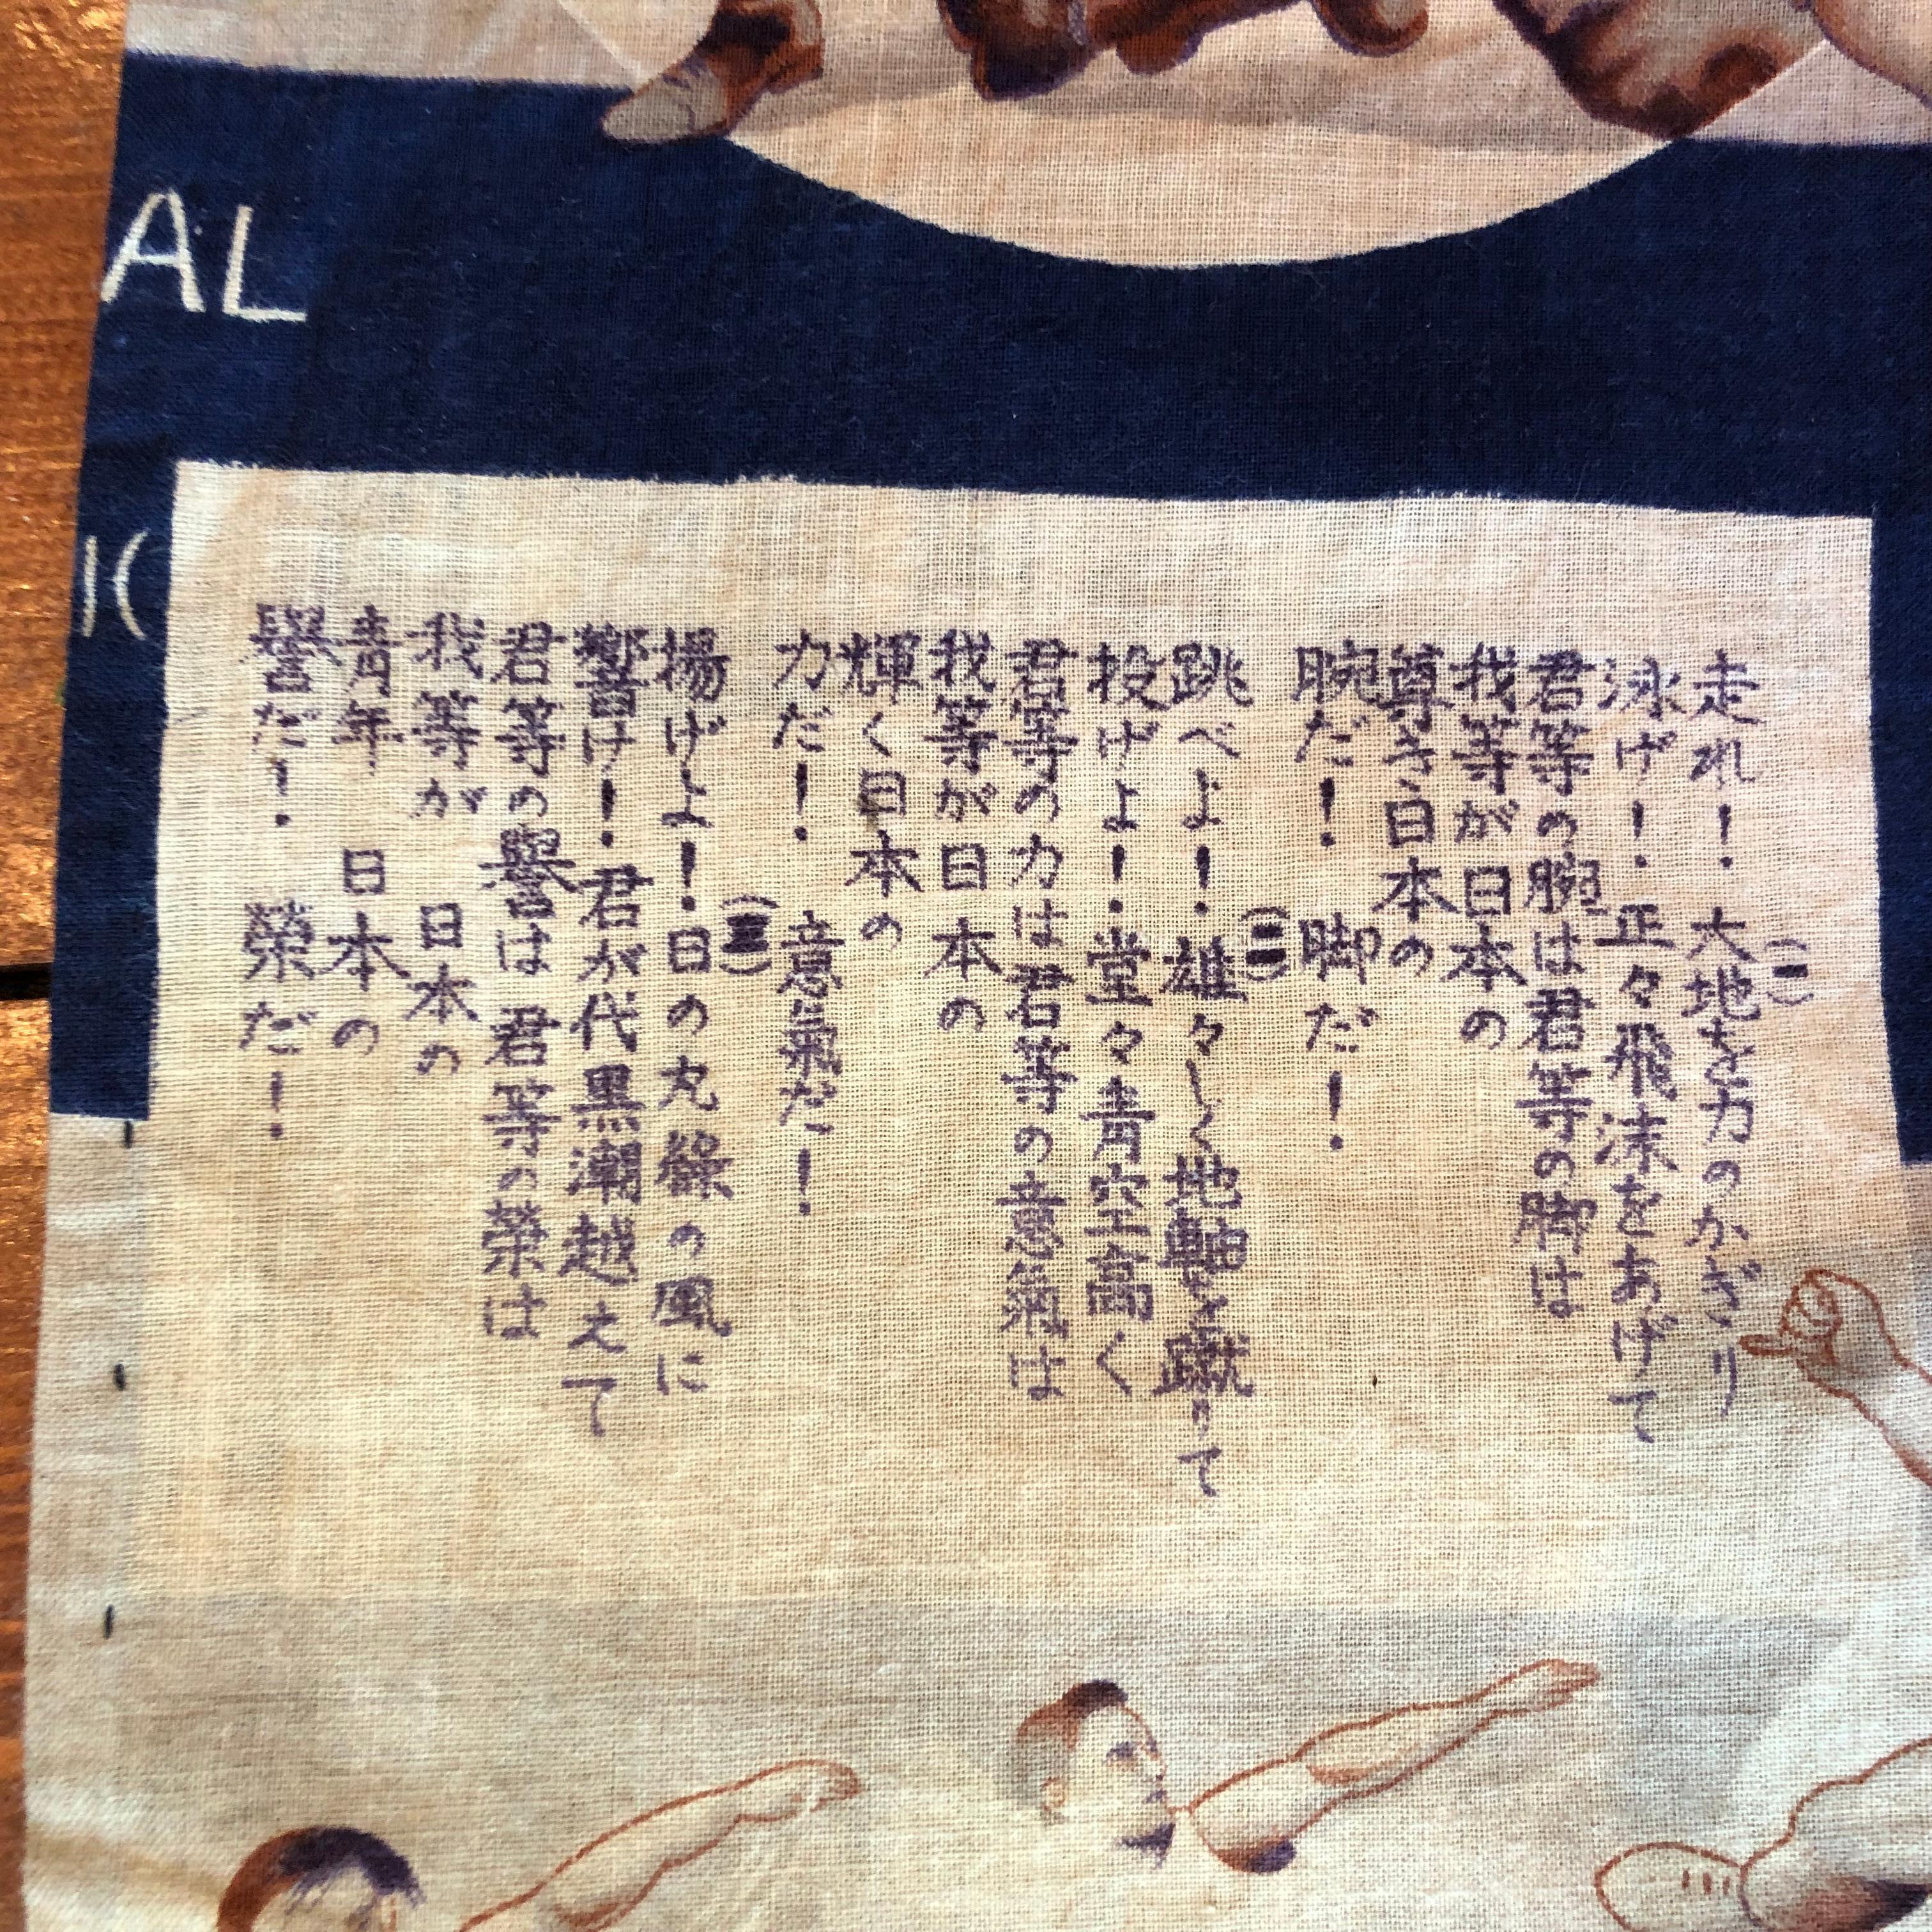 AL
IC
(一)
走れ！大地を力のかぎり
泳げ！正々飛沫をあげて
君等の腕は君等の脚は
我等が日本の
尊き日本の
腕だ！ 脚だ！
(二)
跳べよ！雄々しく地軸を蹴りて
投げよ！堂々青空高く
君等の力は君等の意氣は
我等が日本の
輝く日本の
力だ！ 意氣だ！
(三)
揚げよ！日の丸綠の風に
響け！君が代黒潮越えて
君等の譽は君等の榮は
我等が 日本の
青年 日本の
譽だ！ 榮だ！